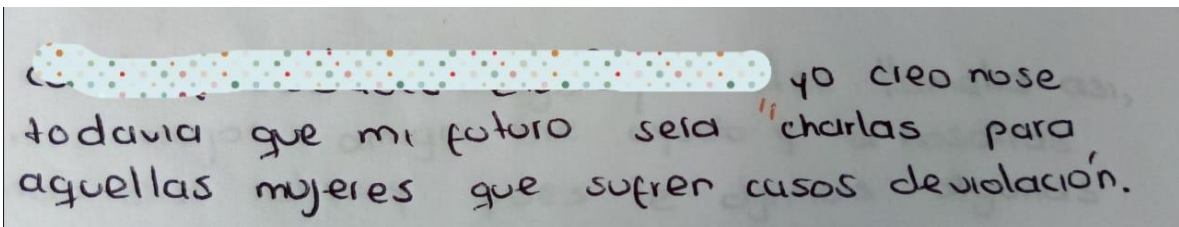 yo creo nose
todavia que mi futuro sera "charlas para
aquellas mujeres que sufren casos de violación.